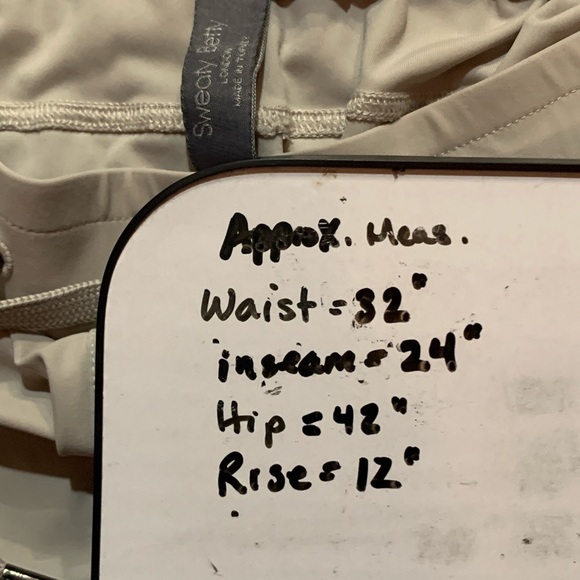 Sweaty Betty
LONDON
MADE IN TURKEY
Approx. Meas.
Waist = 32"
inseam = 24"
Hip = 42"
Rise = 12"